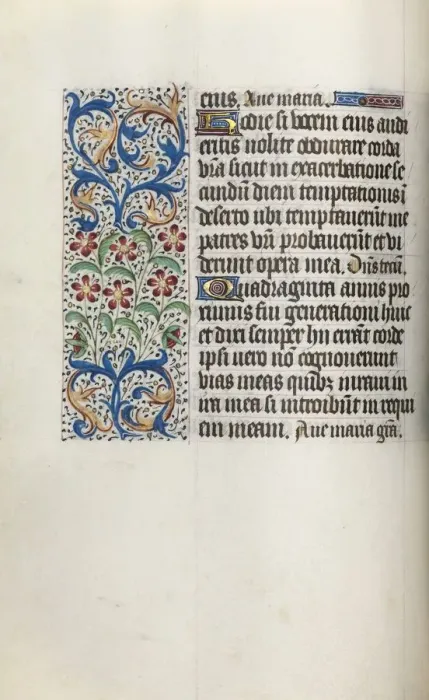 eius. Aue maria.
Hodie si vocem eius audi
eritis nolite obdurare corda
vr̄a sicut in exacerbatione se
cundum diem temptationis ī
deserto ubi temptauerūt me
patres vr̄i probauerūt et vi
derunt opera mea. Dn̄s tecū.
Quadraginta annis pro
ximus fui generationi huic
et dixi semper hii errāt corde
ipsi uero nō cognouerunt
vias meas quibꝫ iuraui in
ira mea si introibūt in requi
em meam. Aue maria gr̄a.